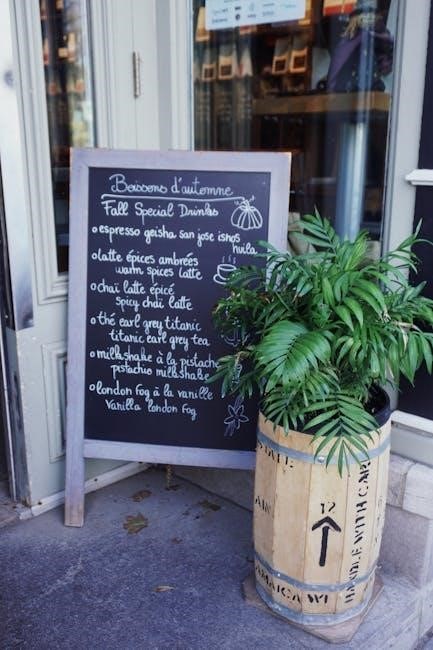 Boissons d'automne
Fall Special Drinks
espresso geisha san jose isnos
huila
latte épices ambrées
warm spices latte
chaï latte épicé
spicy chaï latte
thé earl grey titanic
titanic earl grey tea
milkshake à la pistache
pistachio milkshake
london fog à la vanille
Vanilla london fog
12
HANDLE WITH CAR
AMAICA WI